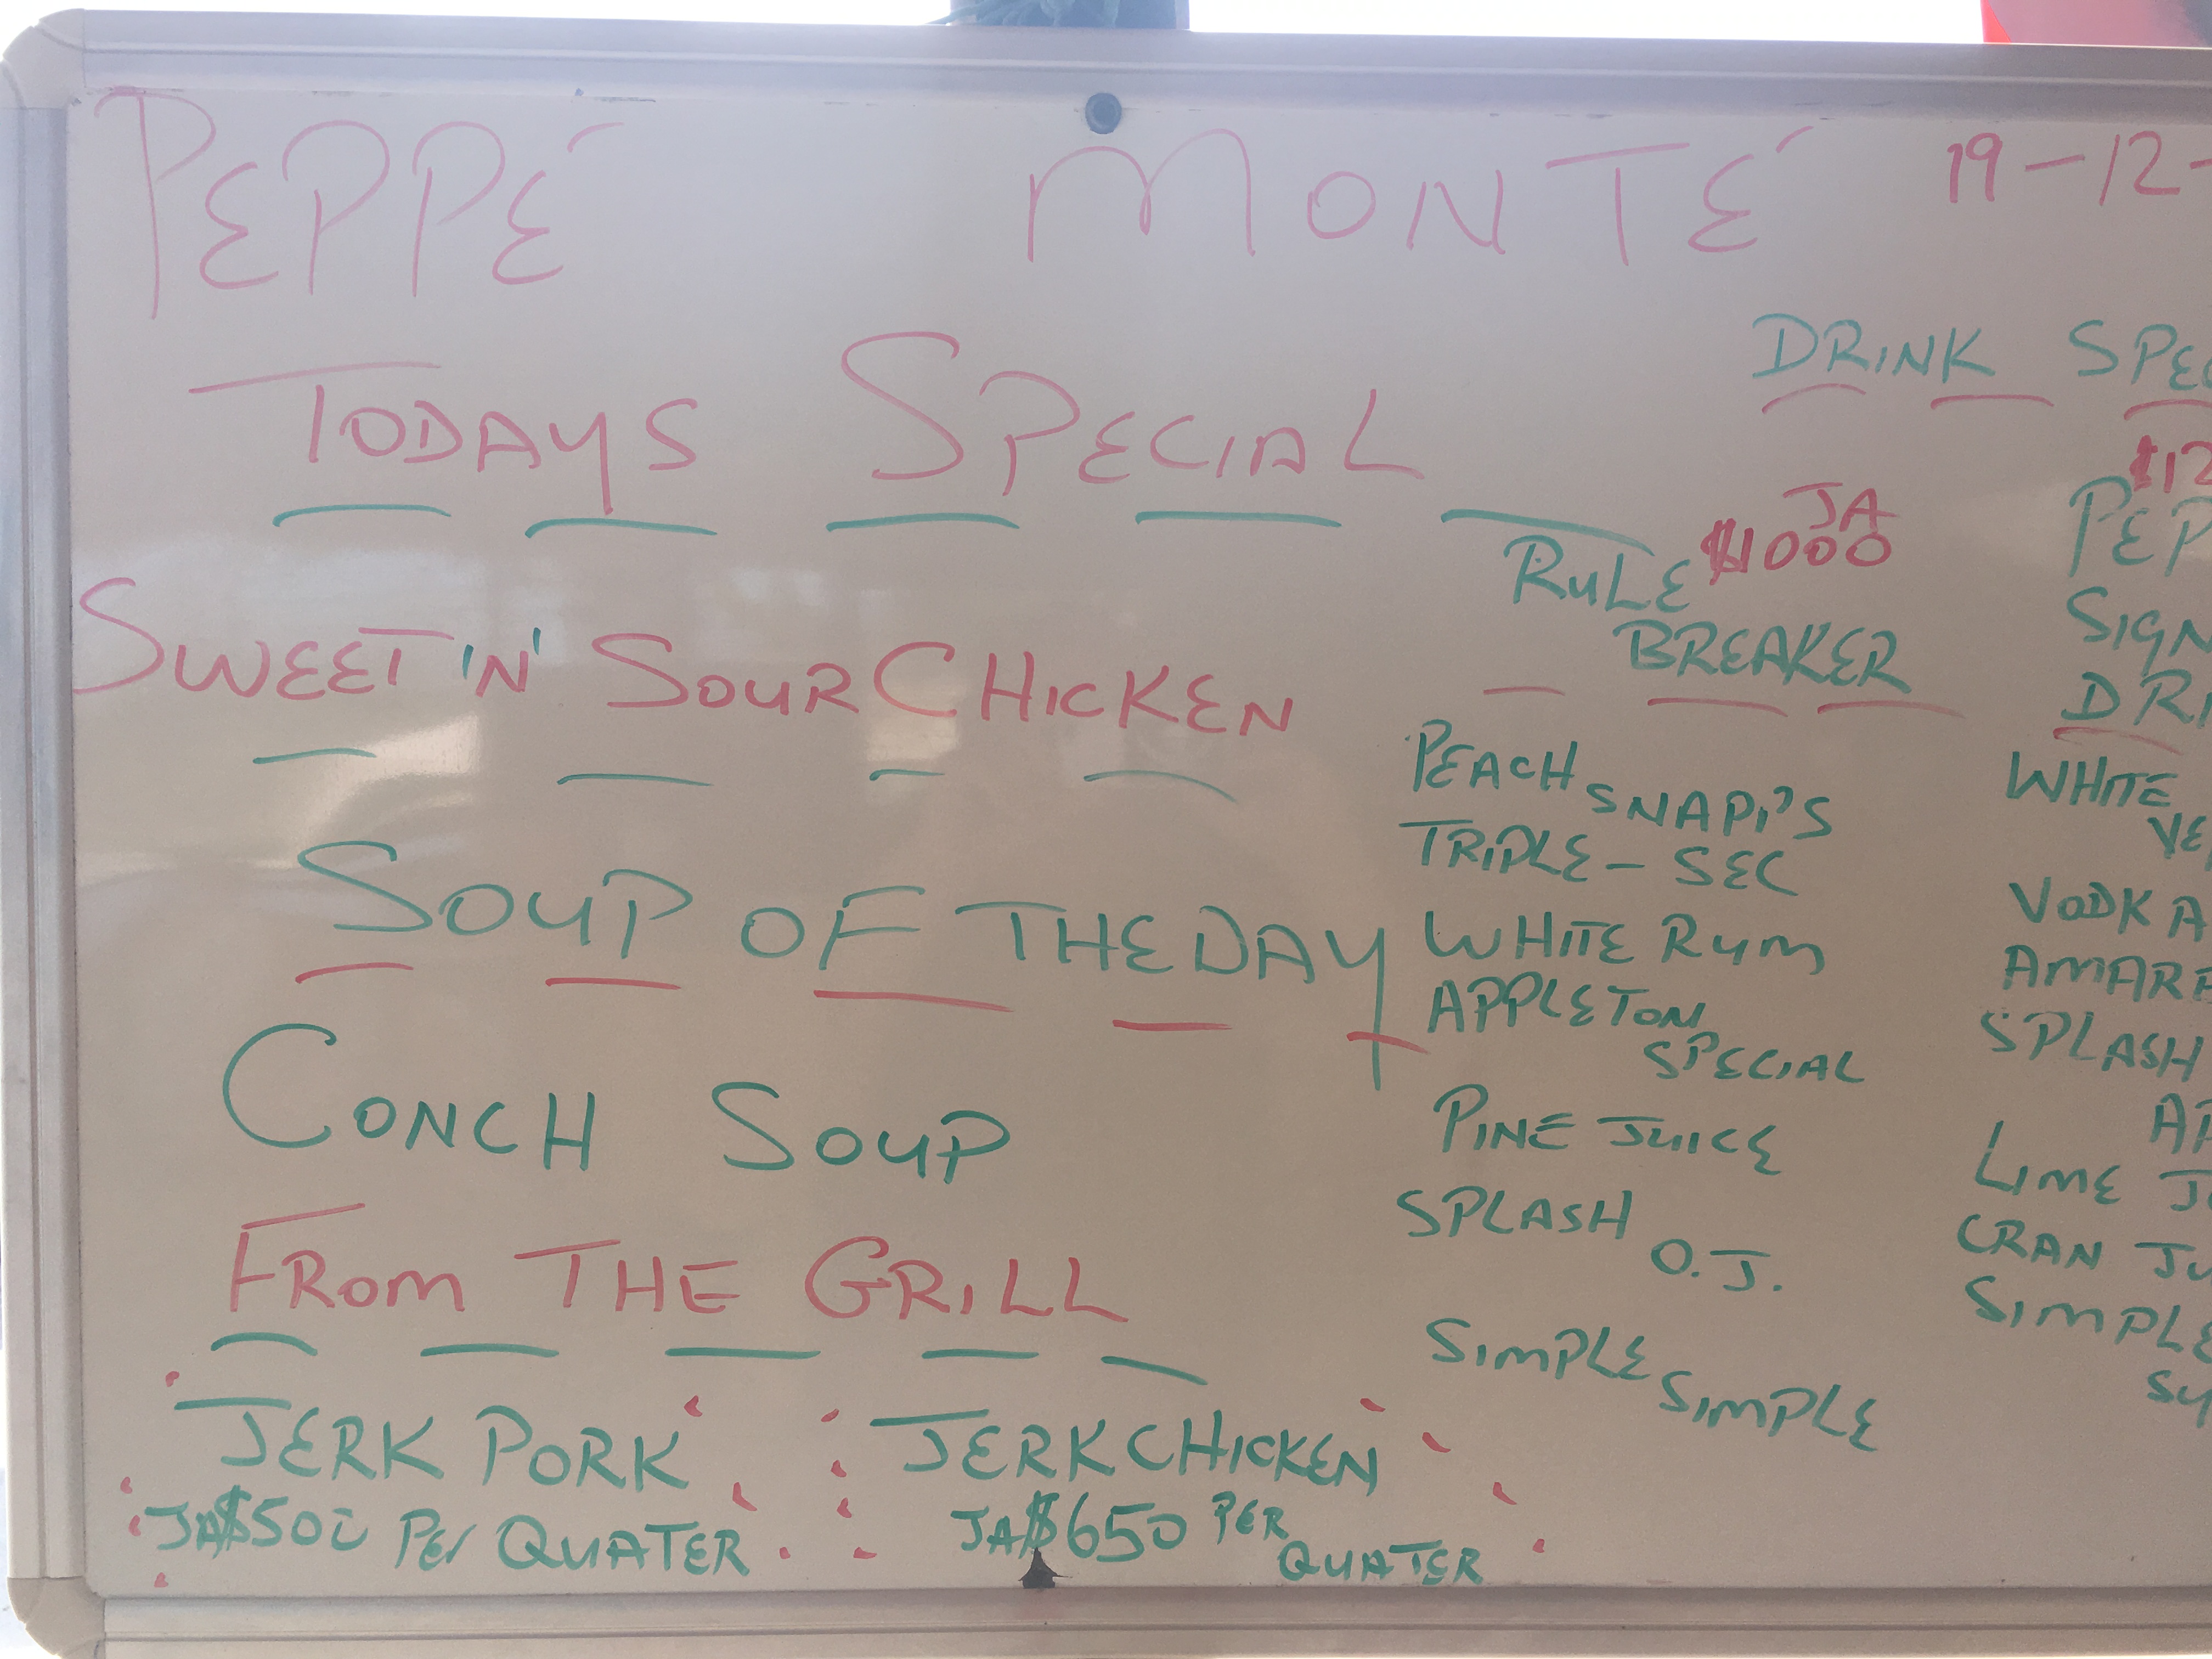 PEPPÉ MONTÉ 19-12-
TODAYS SPECIAL
SWEET 'N' SOUR CHICKEN
SOUP OF THE DAY
CONCH SOUP
FROM THE GRILL
JERK PORK
JA$500 PER QUATER
JERK CHICKEN
JA$650 PER
QUATER
DRINK
JA
RULE $1000
BREAKER
PEACH SNAPI'S
TRIPLE-SEC
WHITE RUM
APPLETON
SPECIAL
PINE JUICE
SPLASH
O.J.
SIMPLE
SIMPLE
WHITE
VODKA
SPLASH
LIME
CRAN
SIMPLE